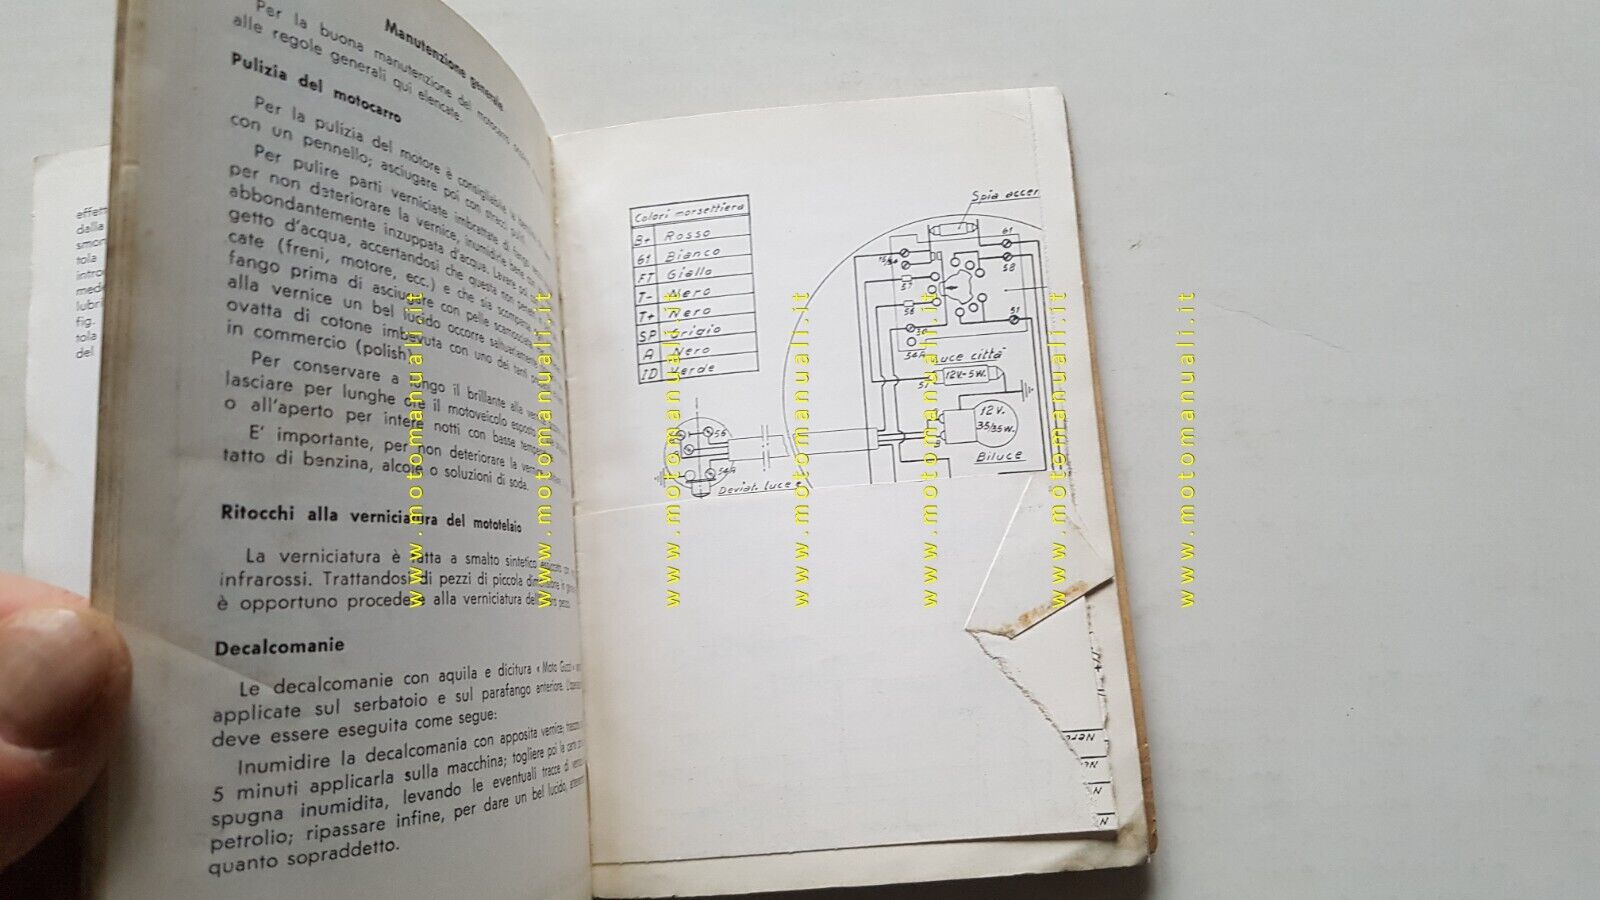 effett
dalla
smon
tola
introd
mede
lubri
fig.
tola
del
Manutenzione generale
Per la buona manutenzione del motocarro
alle regole generali qui elencate.
Pulizia del motocarro
Per la pulizia del motore è consigliabile la
con un pennello; asciugare poi con stracci puliti.
Per pulire parti verniciate imbrattate di
per non deteriorare la vernice, inumidirle bene con
abbondantemente inzuppata d'acqua. Lavare poi con
getto d'acqua, accertandosi che questa non penetri
cate (freni, motore, ecc.) e che sia scomparsa
fango prima di asciugare con pelle scamosciata.
alla vernice un bel lucido occorre saltuariamente
ovatta di cotone imbevuta con uno dei tanti
in commercio (polish).
Per conservare a lungo il brillante alla
lasciare per lunghe ore il motoveicolo esposto
o all'aperto per intere notti con basse
E' importante, per non deteriorare la
tatto di benzina, alcole o soluzioni di soda.
Ritocchi alla verniciatura del mototelaio
La verniciatura è fatta a smalto sintetico essiccato con
infrarossi. Trattandosi di pezzi di piccola
è opportuno procedere alla verniciatura
Decalcomanie
Le decalcomanie con aquila e dicitura « Moto Guzzi »
applicate sul serbatoio e sul parafango anteriore.
deve essere eseguita come segue:
Inumidire la decalcomania con apposita vernice;
5 minuti applicarla sulla macchina; togliere poi la carta
spugna inumidita, levando le eventuali tracce di
petrolio; ripassare infine, per dare un bel lucido,
quanto sopraddetto.
Colori morsettiera
B+ Rosso
61 Bianco
FT Giallo
T- Nero
T+ Nero
SP Grigio
A Nero
ID Verde
Spia accen
15/54
61
58
57
58
30
51
54A
Luce città
57
12V.-5W.
12V.
35/35W.
Biluce
56
54A
Deviat. luce e
Nero
Ne
N
N
www.motomanuali.it
www.motomanuali.it
www.motomanuali.it
www.motomanuali.it
www.motomanuali.it
www.motomanuali.it
www.motomanuali.it